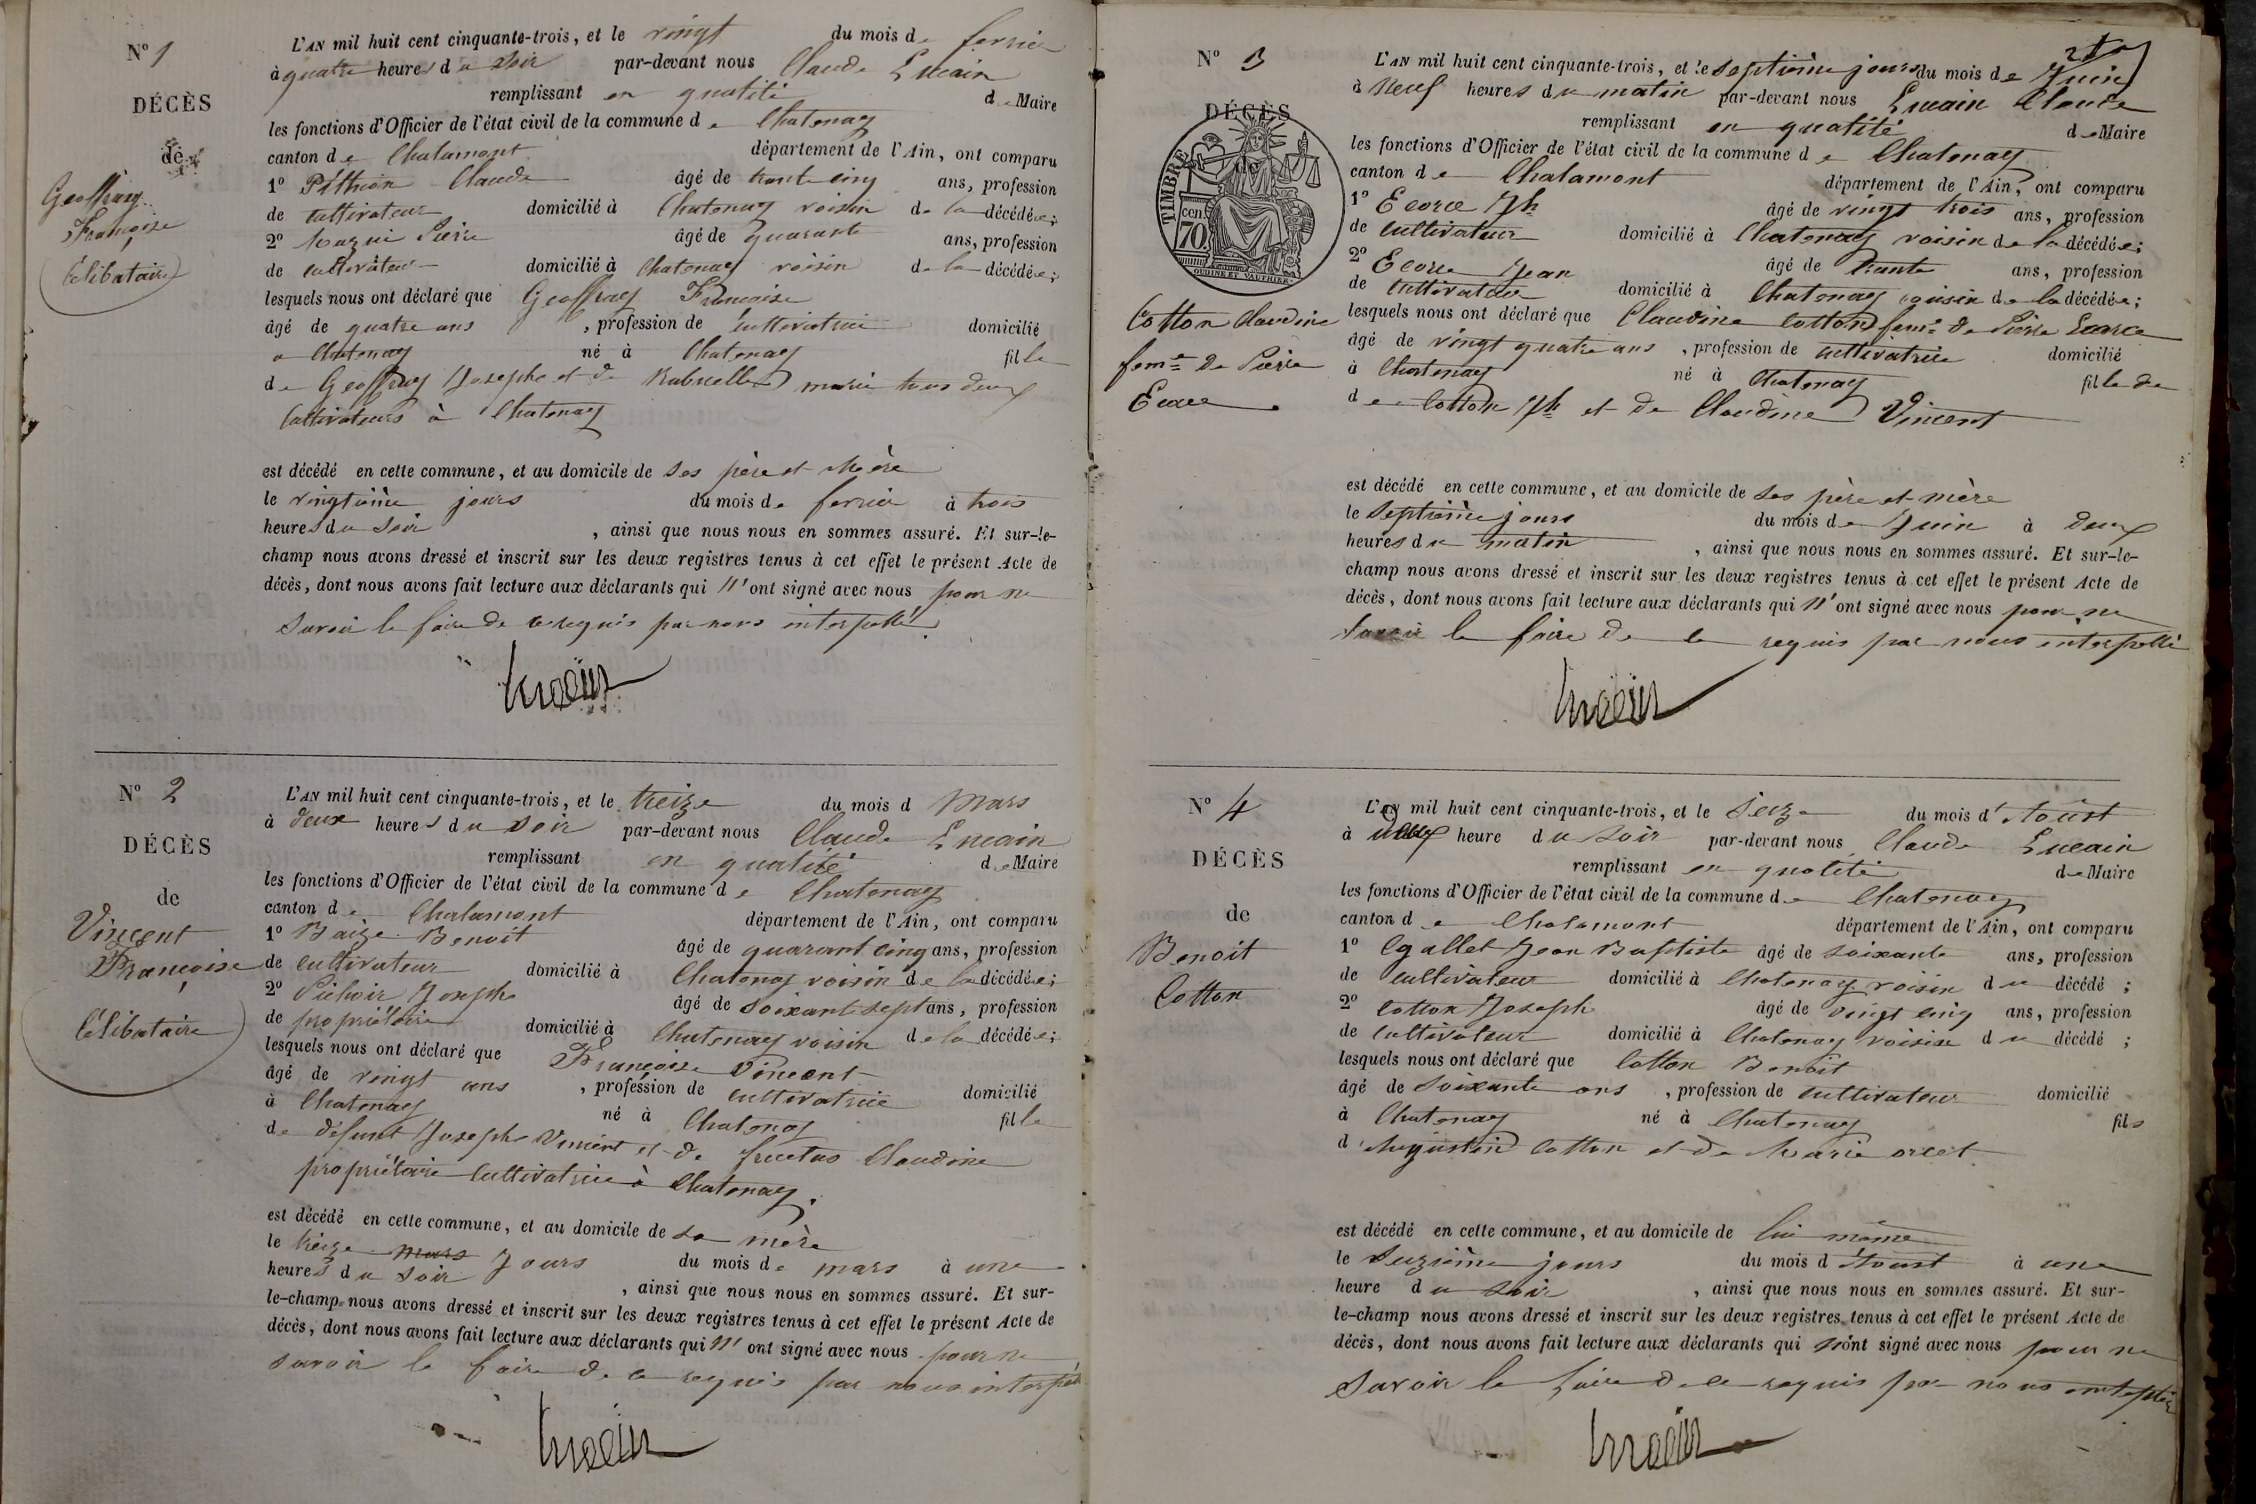 N° 1
DÉCÈS
de
Geoffray
Françoise
Célibataire
L'AN mil huit cent cinquante-trois, et le vingt du mois de fevrier
à quatre heures du soir par-devant nous Claude Lucain
remplissant en qualité de Maire
les fonctions d'Officier de l'état civil de la commune de Chatenay
canton de Chalamont département de l'Ain, ont comparu
1° Claude âgé de trente cinq ans, profession
de cultivateur domicilié à Chatenay voisin de la décédée;
2° Pierre âgé de quarante ans, profession
de cultivateur domicilié à Chatenay voisin de la décédée;
lesquels nous ont déclaré que Geoffray Françoise
âgé de quatre ans, profession de cultivatrice domicilié
à Chatenay né à Chatenay fille
de Geoffray Josephe et de marie tous deux
Cultivateurs à Chatenay
est décédé en cette commune, et au domicile de ses père et Mère
le vingtième jours du mois de fevrier à trois
heures du soir, ainsi que nous nous en sommes assuré. Et sur-le-
champ nous avons dressé et inscrit sur les deux registres tenus à cet effet le présent Acte de
décès, dont nous avons fait lecture aux déclarants qui n'ont signé avec nous pour ne
savoir le faire de ce requis par nous interpellé
Lucain
N° 2
DÉCÈS
de
Vincent
Françoise
Célibataire
L'AN mil huit cent cinquante-trois, et le treize du mois d Mars
à deux heures du soir par-devant nous Claude Lucain
remplissant en qualité de Maire
les fonctions d'Officier de l'état civil de la commune de Chatenay
canton de Chalamont département de l'Ain, ont comparu
1° Baize Benoit âgé de quarant cinq ans, profession
de cultivateur domicilié à Chatenay voisin de la décédée;
2° Joseph âgé de soixante sept ans, profession
de propriétaire domicilié à Chatenay voisin de la décédée;
lesquels nous ont déclaré que Françoise Vincent
âgé de vingt ans, profession de cultivatrice domicilié
à Chatenay né à Chatenay fille
de défunt Joseph Vincent et de fructus Claudine
propriétaire Cultivatrice à Chatenay.
est décédé en cette commune, et au domicile de sa mère
le treize mars jours du mois de mars à une
heures du soir, ainsi que nous nous en sommes assuré. Et sur-
le-champ nous avons dressé et inscrit sur les deux registres tenus à cet effet le présent Acte de
décès, dont nous avons fait lecture aux déclarants qui n'ont signé avec nous pour ne
savoir le faire de ce requis par nous interpellé
Lucain
N° 3
DÉCÈS
TIMBRE
cen.
70
OUDINÉ ET VAUTHIER
Cotton Claudine
feme de Pierre
Ecorce
L'AN mil huit cent cinquante-trois, et le septième jours du mois de Juin
à Neuf heures du matin par-devant nous Lucain Claude
remplissant en qualité de Maire
les fonctions d'Officier de l'état civil de la commune de Chatenay
canton de Chalamont département de l'Ain, ont comparu
1° Ecorce Jh âgé de vingt trois ans, profession
de cultivateur domicilié à Chatenay voisin de la décédée;
2° Ecorce Jean âgé de trente ans, profession
de cultivateur domicilié à Chatenay voisin de la décédée;
lesquels nous ont déclaré que Claudine Cotton feme de Pierre Ecorce
âgé de vingt quatre ans, profession de cultivatrice domicilié
à Chatenay né à Chatenay fille de
de Cotton Jh et de Claudine Vincent
est décédé en cette commune, et au domicile de ses père et mère
le septième jours du mois de Juin à deux
heures du matin, ainsi que nous nous en sommes assuré. Et sur-le-
champ nous avons dressé et inscrit sur les deux registres tenus à cet effet le présent Acte de
décès, dont nous avons fait lecture aux déclarants qui n'ont signé avec nous pour ne
savoir le faire de ce requis par nous interpellé
Lucain
N° 4
DÉCÈS
de
Benoit
Cotton
L'AN mil huit cent cinquante-trois, et le seize du mois d'Aoust
à heure du soir par-devant nous Claude Lucain
remplissant en qualité de Maire
les fonctions d'Officier de l'état civil de la commune de Chatenay
canton de Chalamont département de l'Ain, ont comparu
1° Jean Baptiste âgé de soixante ans, profession
de cultivateur domicilié à Chatenay voisin du décédé;
2° Cotton Joseph âgé de vingt cinq ans, profession
de cultivateur domicilié à Chatenay voisin du décédé;
lesquels nous ont déclaré que Cotton Benoit
âgé de soixante ans, profession de cultivateur domicilié
à Chatenay né à Chatenay fils
d'Augustin Cotton et de Marie
est décédé en cette commune, et au domicile de lui même
le seizième jours du mois d'Aoust à une
heure du soir, ainsi que nous nous en sommes assuré. Et sur-
le-champ nous avons dressé et inscrit sur les deux registres tenus à cet effet le présent Acte de
décès, dont nous avons fait lecture aux déclarants qui n'ont signé avec nous pour ne
savoir le faire de ce requis par nous interpellé
Lucain